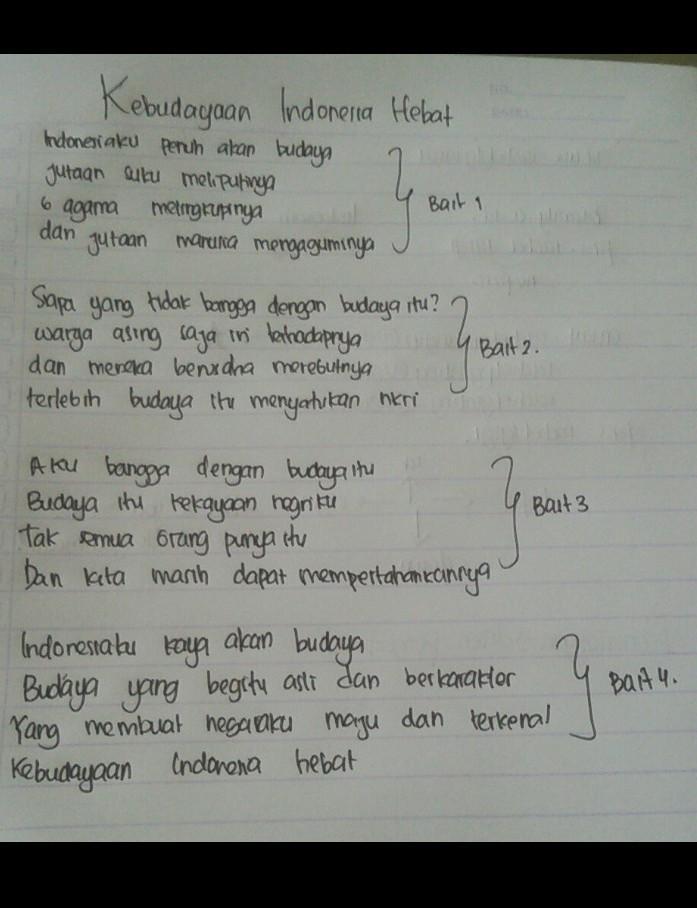 Kebudayaan Indonesia Hebat
Indonesiaku penuh akan budaya
jutaan suku meliputinya
6 agama melingkupinya
dan jutaan manusia mengaguminya
Bait 1
Siapa yang tidak bangga dengan budaya itu?
warga asing saja iri terhadapnya
dan mereka berusaha merebutnya
terlebih budaya itu menyatukan nkri
Bait 2.
Aku bangga dengan budaya itu
Budaya itu kekayaan negriku
Tak semua orang punya itu
Dan kita masih dapat mempertahankannya
Bait 3
Indonesiaku kaya akan budaya
Budaya yang begitu asli dan berkarakter
Yang membuat negaraku maju dan terkenal
Kebudayaan Indonesia hebat
Bait 4.